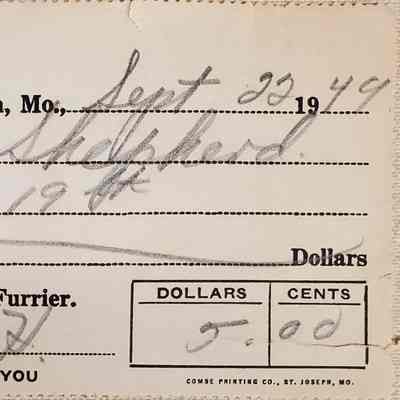 , Mo., Sept 22 1949
Shepherd.
19th
Dollars
Furrier.
DOLLARS CENTS
5. 00
H.
YOU
COMBE PRINTING CO., ST. JOSEPH, MO.